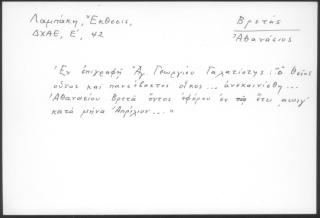 Λαμπάκη, Ἔκθεσις,
ΔΧΑΕ, Ε΄, 42
Βρετάς
Ἀθανάσιος
Ἐν ἐπιγραφῇ Ἁγ. Γεωργίου Γαλατίστης: "Ὁ θεῖος
οὗτος καὶ πανσέβαστος οἶκος... ἀνεκαινίσθη...
Ἀθανασίου Βρετᾶ ὄντος ἐφόρου ἐν ἔτει
κατὰ μῆνα Ἀπρίλιον..."